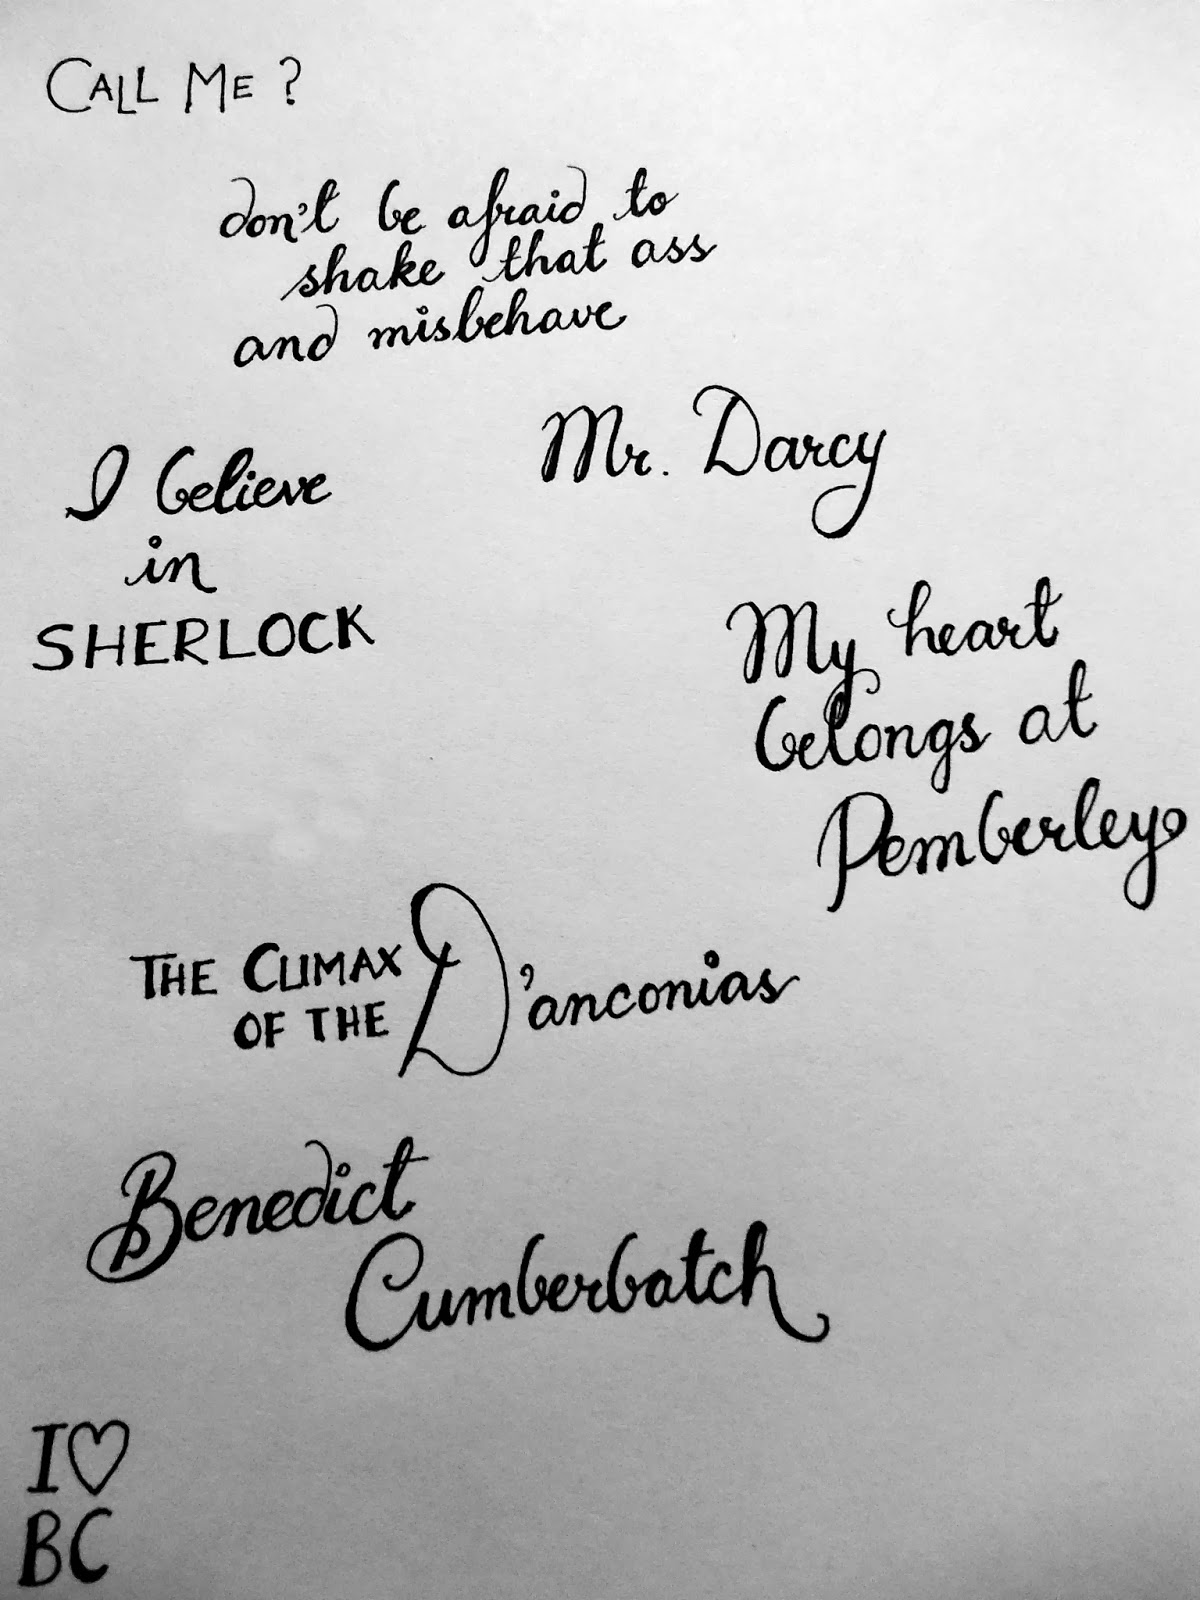 CALL ME ?
don't be afraid to
shake that ass
and misbehave
Mr. Darcy
I believe
in
SHERLOCK
My heart
belongs at
Pemberley
THE CLIMAX
OF THE D'anconias
Benedict
Cumberbatch
I♡
BC